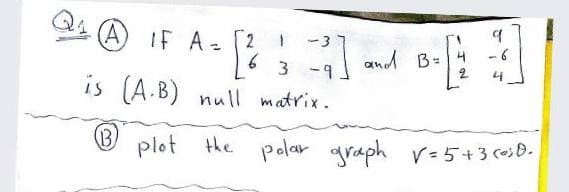 Q1 (A) IF A = [2 1 -3
6 3 -9] and B = [1 9
4 -6
2 4]
is (A.B) null matrix.
(B) plot the polar graph r = 5 + 3 cos θ.